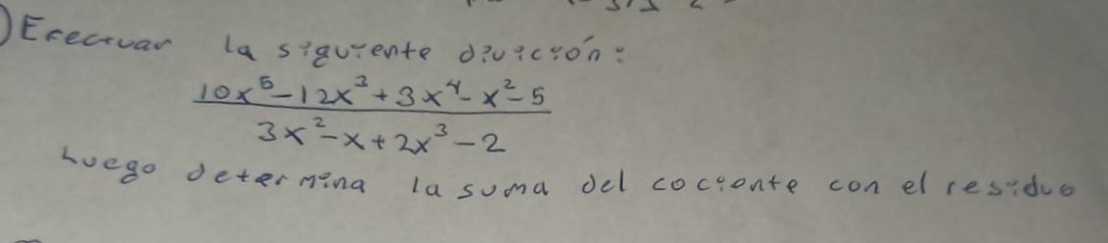 ) Efectuar la siguiente divición:
10x⁵-12x³+3x⁴-x²-5
3x²-x+2x³-2
Luego determina la suma del cociente con el residuo